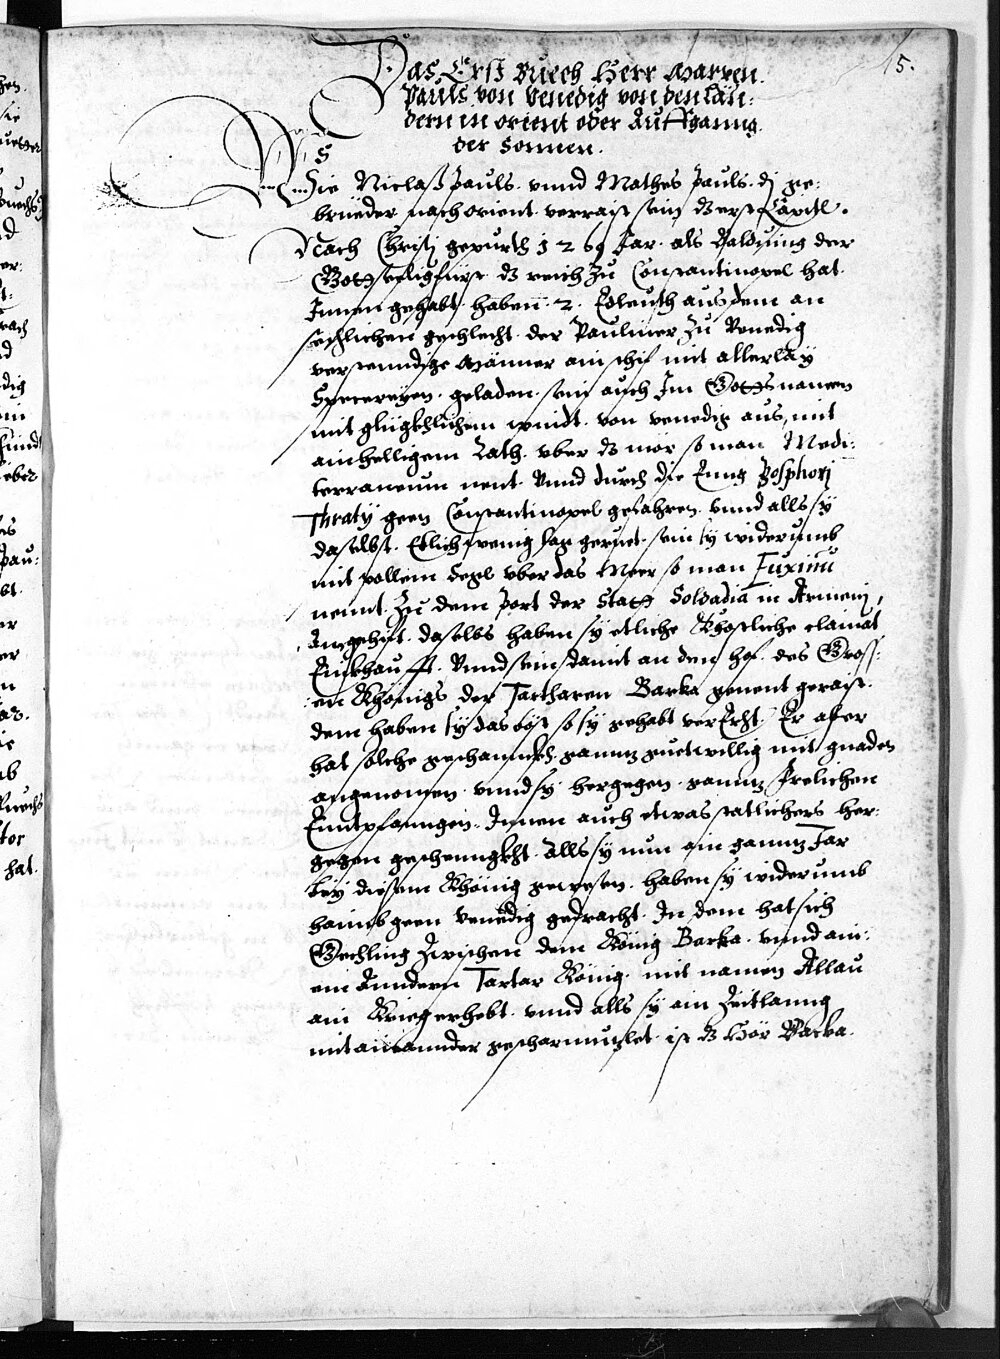 15.
Das Erst Buech Herr Marxen
Pauls von Venedig von den Län:
dern in orient oder Auffganng
der Sonnen.
Wie Niclaß Pauls. vnnd Mathes Pauls. di ge:
brüeder nach orient verraist sein ds erst Capitl.
Nach Christj gepurth 1269 Jar. als Balduing der
Gottseligfürst ds reich zu Constantinopel hat
Innen gehabt. haben. 2. Edleuth aus dem an
sechlichen geschlecht der Pauliner zu Venedig
verstenndige Männer ain schif mit allerlay
Specereyen geladen. sein auch Im Gottes namen
mit glügkhlichem windt. von venedig aus, mit
ainhelligem Rath. vber ds mör so man Medi:
terraneum nent. Vnnd durch die Enng Bosphorj
Thratij geen Constantinopel gefahren. vnnd alls sy
daselbst. Etlich wenig tag geruet. sein sy widerumb
mit vollem Segl vber das Meer so man Euxinū
nennt. Zu dem port der Statt Soldadia in Armenj,
Angeschift. daselbs haben sy etliche Khostliche clainat
Einkhaufft. Vnnd sein damit an den hof. des Gross:
en Khönigs der Tartharen Barka genent geraist.
dem haben sy das böst so sy gehabt verErht. Er aber
hat solche geschannkh ganntz guetwillig mit gnaden
angenomen. vnnd sy hergegen ganntz Frelichen
Enntpfanngen. Innen auch etwas statlichers her:
gegen geschenngkht. Alls sy nun ain ganntz Jar
bey diesem Khönig gewesen. haben sy widerumb
haimb geen Venedig gedracht. In dem hat sich
Gechling zwischen dem König Barka. vnnd ain:
em Anndern Tartar König. mit namen Allau
ain Krieg erhebt. vnnd alls sy ain Zeitlanng
mit ainannder gescharmützlet. ist ds Hör Barka.